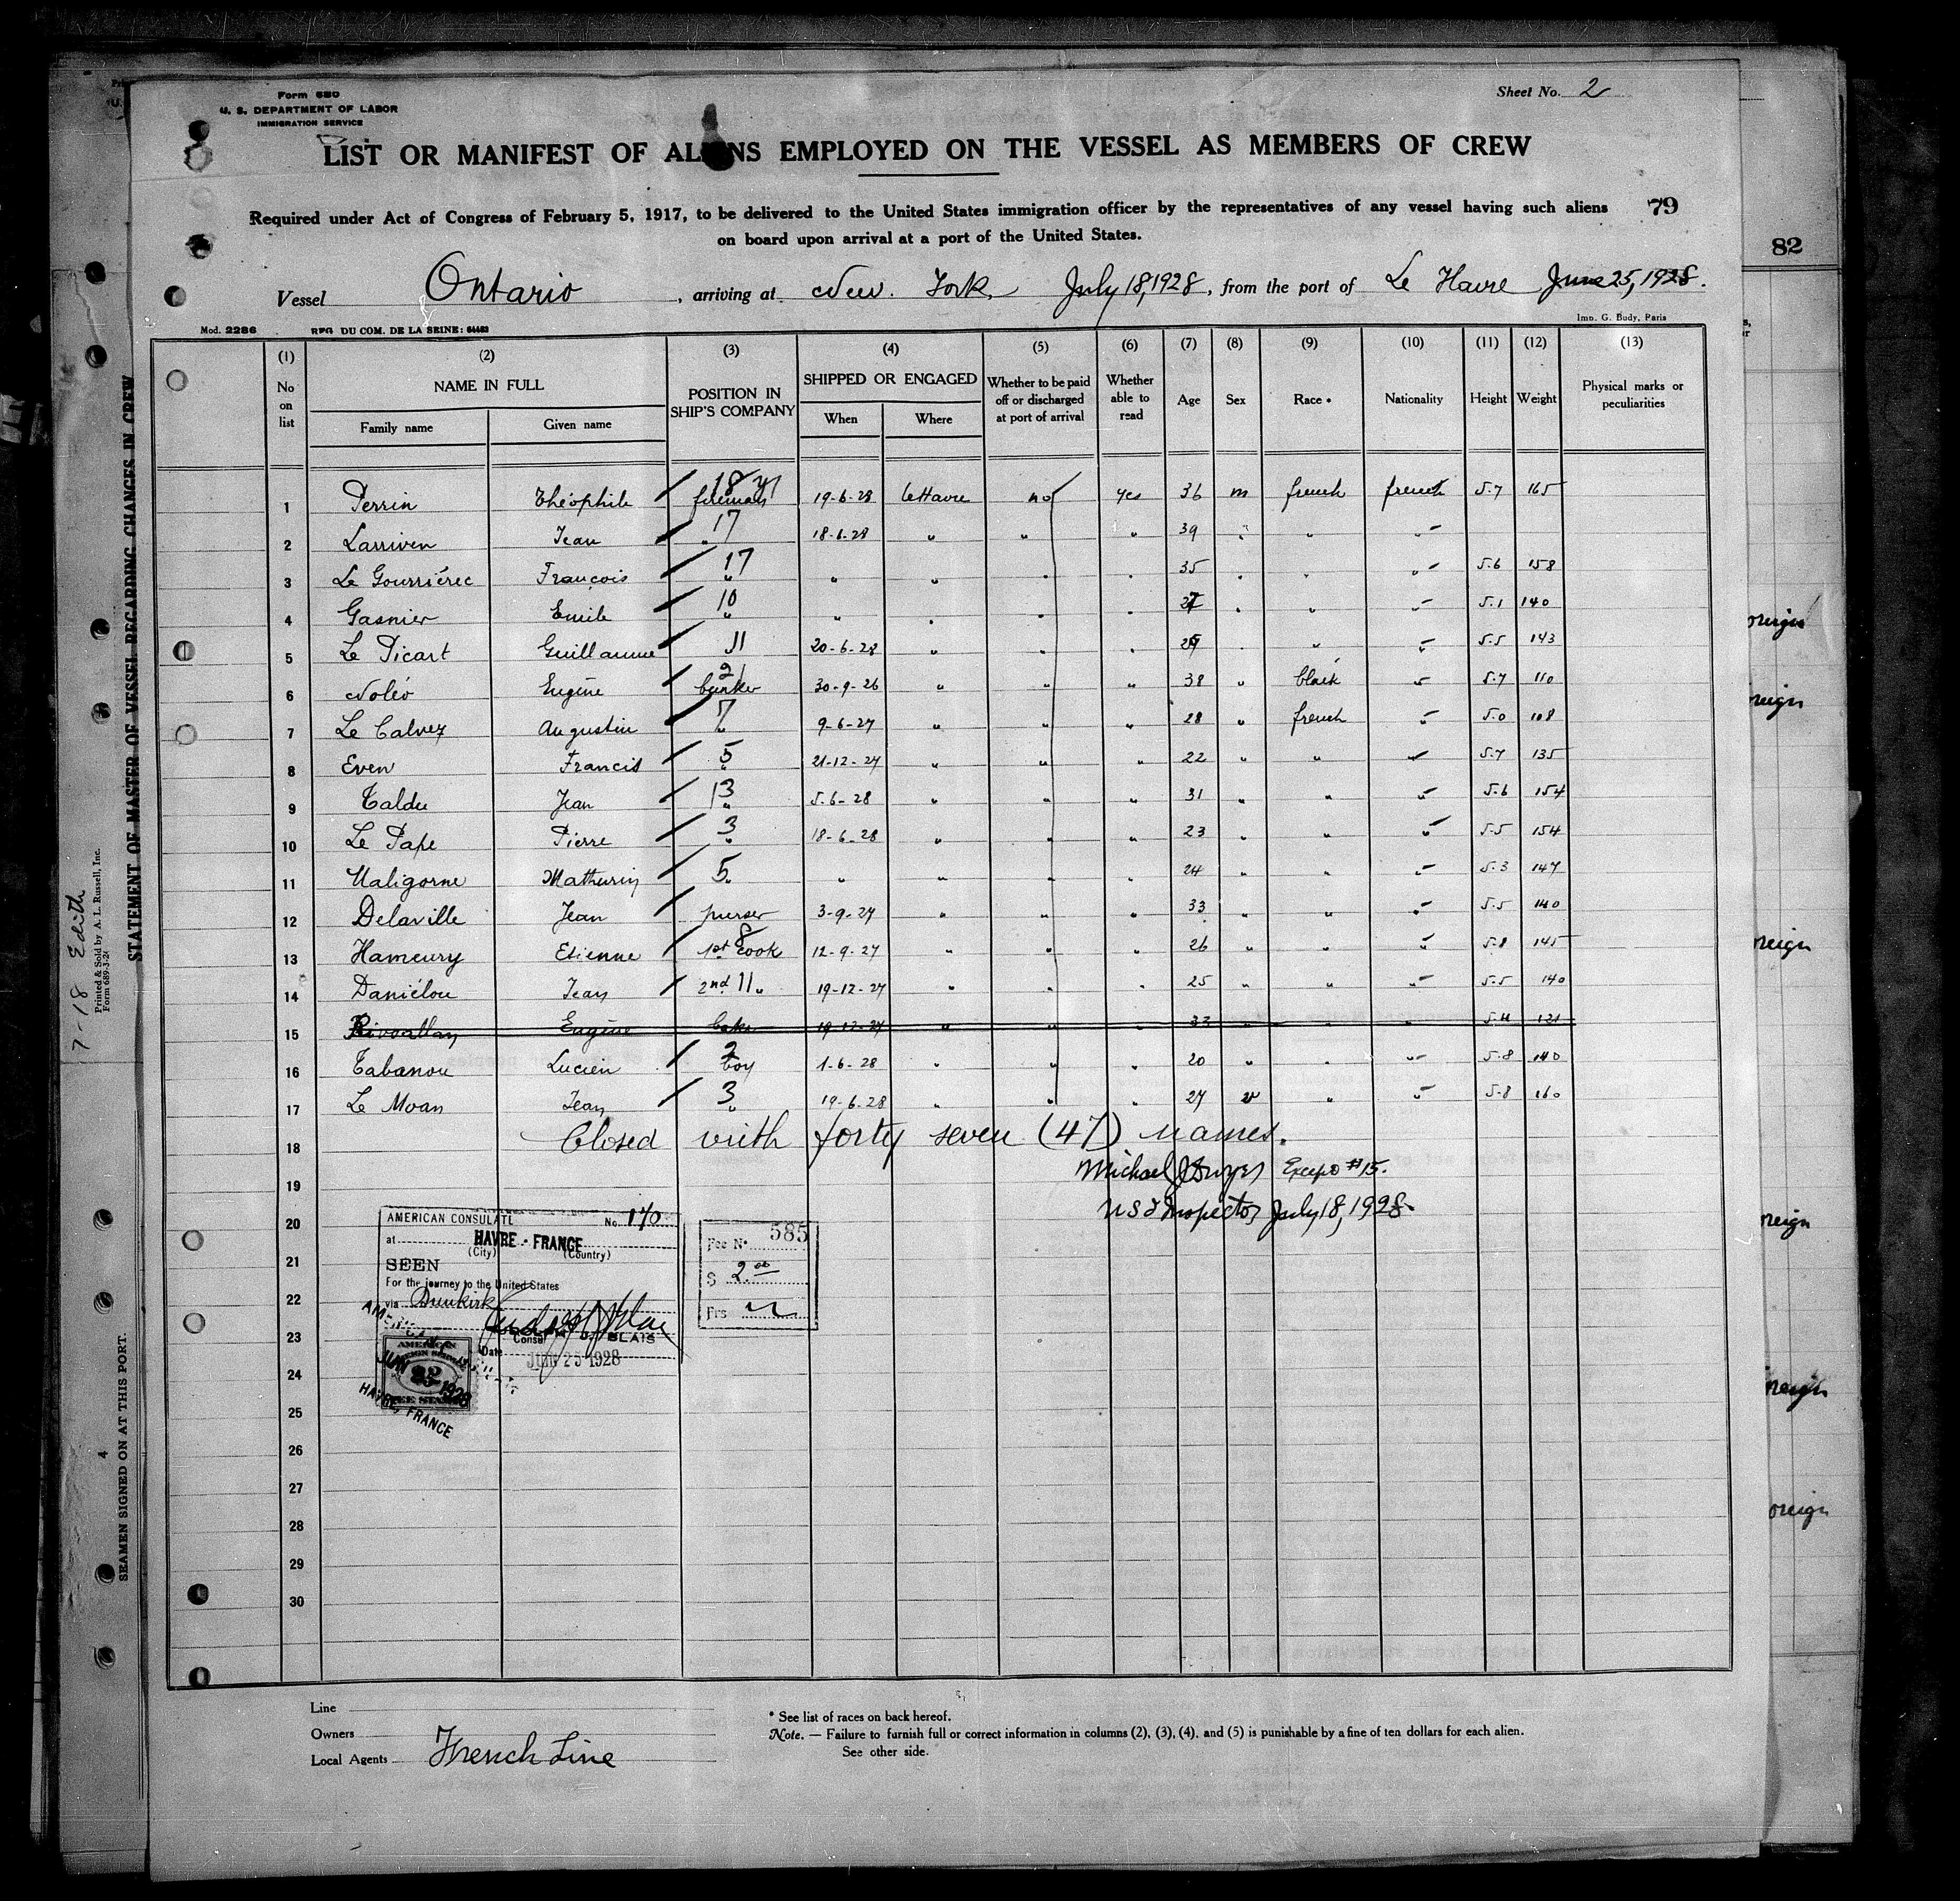 Form 680
U. S. DEPARTMENT OF LABOR
IMMIGRATION SERVICE
Sheet No. 2
LIST OR MANIFEST OF ALIENS EMPLOYED ON THE VESSEL AS MEMBERS OF CREW
Required under Act of Congress of February 5, 1917, to be delivered to the United States immigration officer by the representatives of any vessel having such aliens
on board upon arrival at a port of the United States.
79
82
Vessel Ontario, arriving at New York, July 18, 1928, from the port of Le Havre June 25, 1928.
Mod. 2286 REG DU COM. DE LA SEINE: 64483
Imp. G. Budy, Paris
(1) (2) (3) (4) (5) (6) (7) (8) (9) (10) (11) (12) (13)
No on list NAME IN FULL Family name Given name POSITION IN SHIP'S COMPANY SHIPPED OR ENGAGED When Where Whether to be paid off or discharged at port of arrival Whether able to read Age Sex Race * Nationality Height Weight Physical marks or peculiarities
1 Perrin Théophile 18 y fireman 19-6-28 le Havre no yes 36 m french french 5.7 165
2 Larriven Jean 17 " 18-6-28 " " " 39 " " "
3 Le Gourriérec François 17 " " " " " 35 " " " 5.6 158
4 Gasnier Emile 10 " " " " " " " " 5.1 140
5 Le Picart Guillaume 11 20-6-28 " " " " " " 5.5 143
6 Noléo Eugène 2 bunker 30-9-26 " " " 38 " black " 5.7 110
7 Le Calvez Augustin 7 " 9-6-27 " " " 28 " french " 5.0 108
8 Even Francis 5 " 21-12-27 " " " 22 " " " 5.7 135
9 Taldu Jean 13 " 5-6-28 " " " 31 " " " 5.6 154
10 Le Pape Pierre 3 " 18-6-28 " " " 23 " " " 5.5 154
11 Ualigorne Mathurin 5 " " " " " 24 " " " 5.3 147
12 Delaville Jean purser 3-9-27 " " " 33 " " " 5.5 140
13 Hameury Etienne 8 1st Cook 12-9-27 " " " 26 " " " 5.8 145
14 Daniélou Jean 2nd 11 " 19-12-27 " " " 25 " " " 5.5 140
15 Rivoallan Eugène baker 19-12-27 " " " 33 " " " 5.4 121
16 Tabanou Lucien 2 boy 1-6-28 " " " 20 " " " 5.8 140
17 Le Moan Jean 3 " 19-6-28 " " " 27 " " " 5.8 160
18 Closed with forty seven (47) names.
Michael J Dwyer Except #15.
19
US I Inspector July 18, 1928.
20
21
22
23
24
25
26
27
28
29
30
AMERICAN CONSULATE No. 170
at HAVRE - FRANCE
(City) (Country)
SEEN
For the journey to the United States
via Dunkirk
BLAIS
Consul
Date JUN 25 1928
Fee No. 585
$ 2.00
Frs
AMERICAN
HAVRE, FRANCE
Line
Owners
Local Agents French Line
* See list of races on back hereof.
Note. — Failure to furnish full or correct information in columns (2), (3), (4), and (5) is punishable by a fine of ten dollars for each alien.
See other side.
STATEMENT OF MASTER OF VESSEL REGARDING CHANGES IN CREW
7-18 Edith
Printed & Sold by A. L. Russell, Inc.
Form 689-3-24
4
SEAMEN SIGNED ON AT THIS PORT.
oreign
reign
reign
reign
reign
oreign